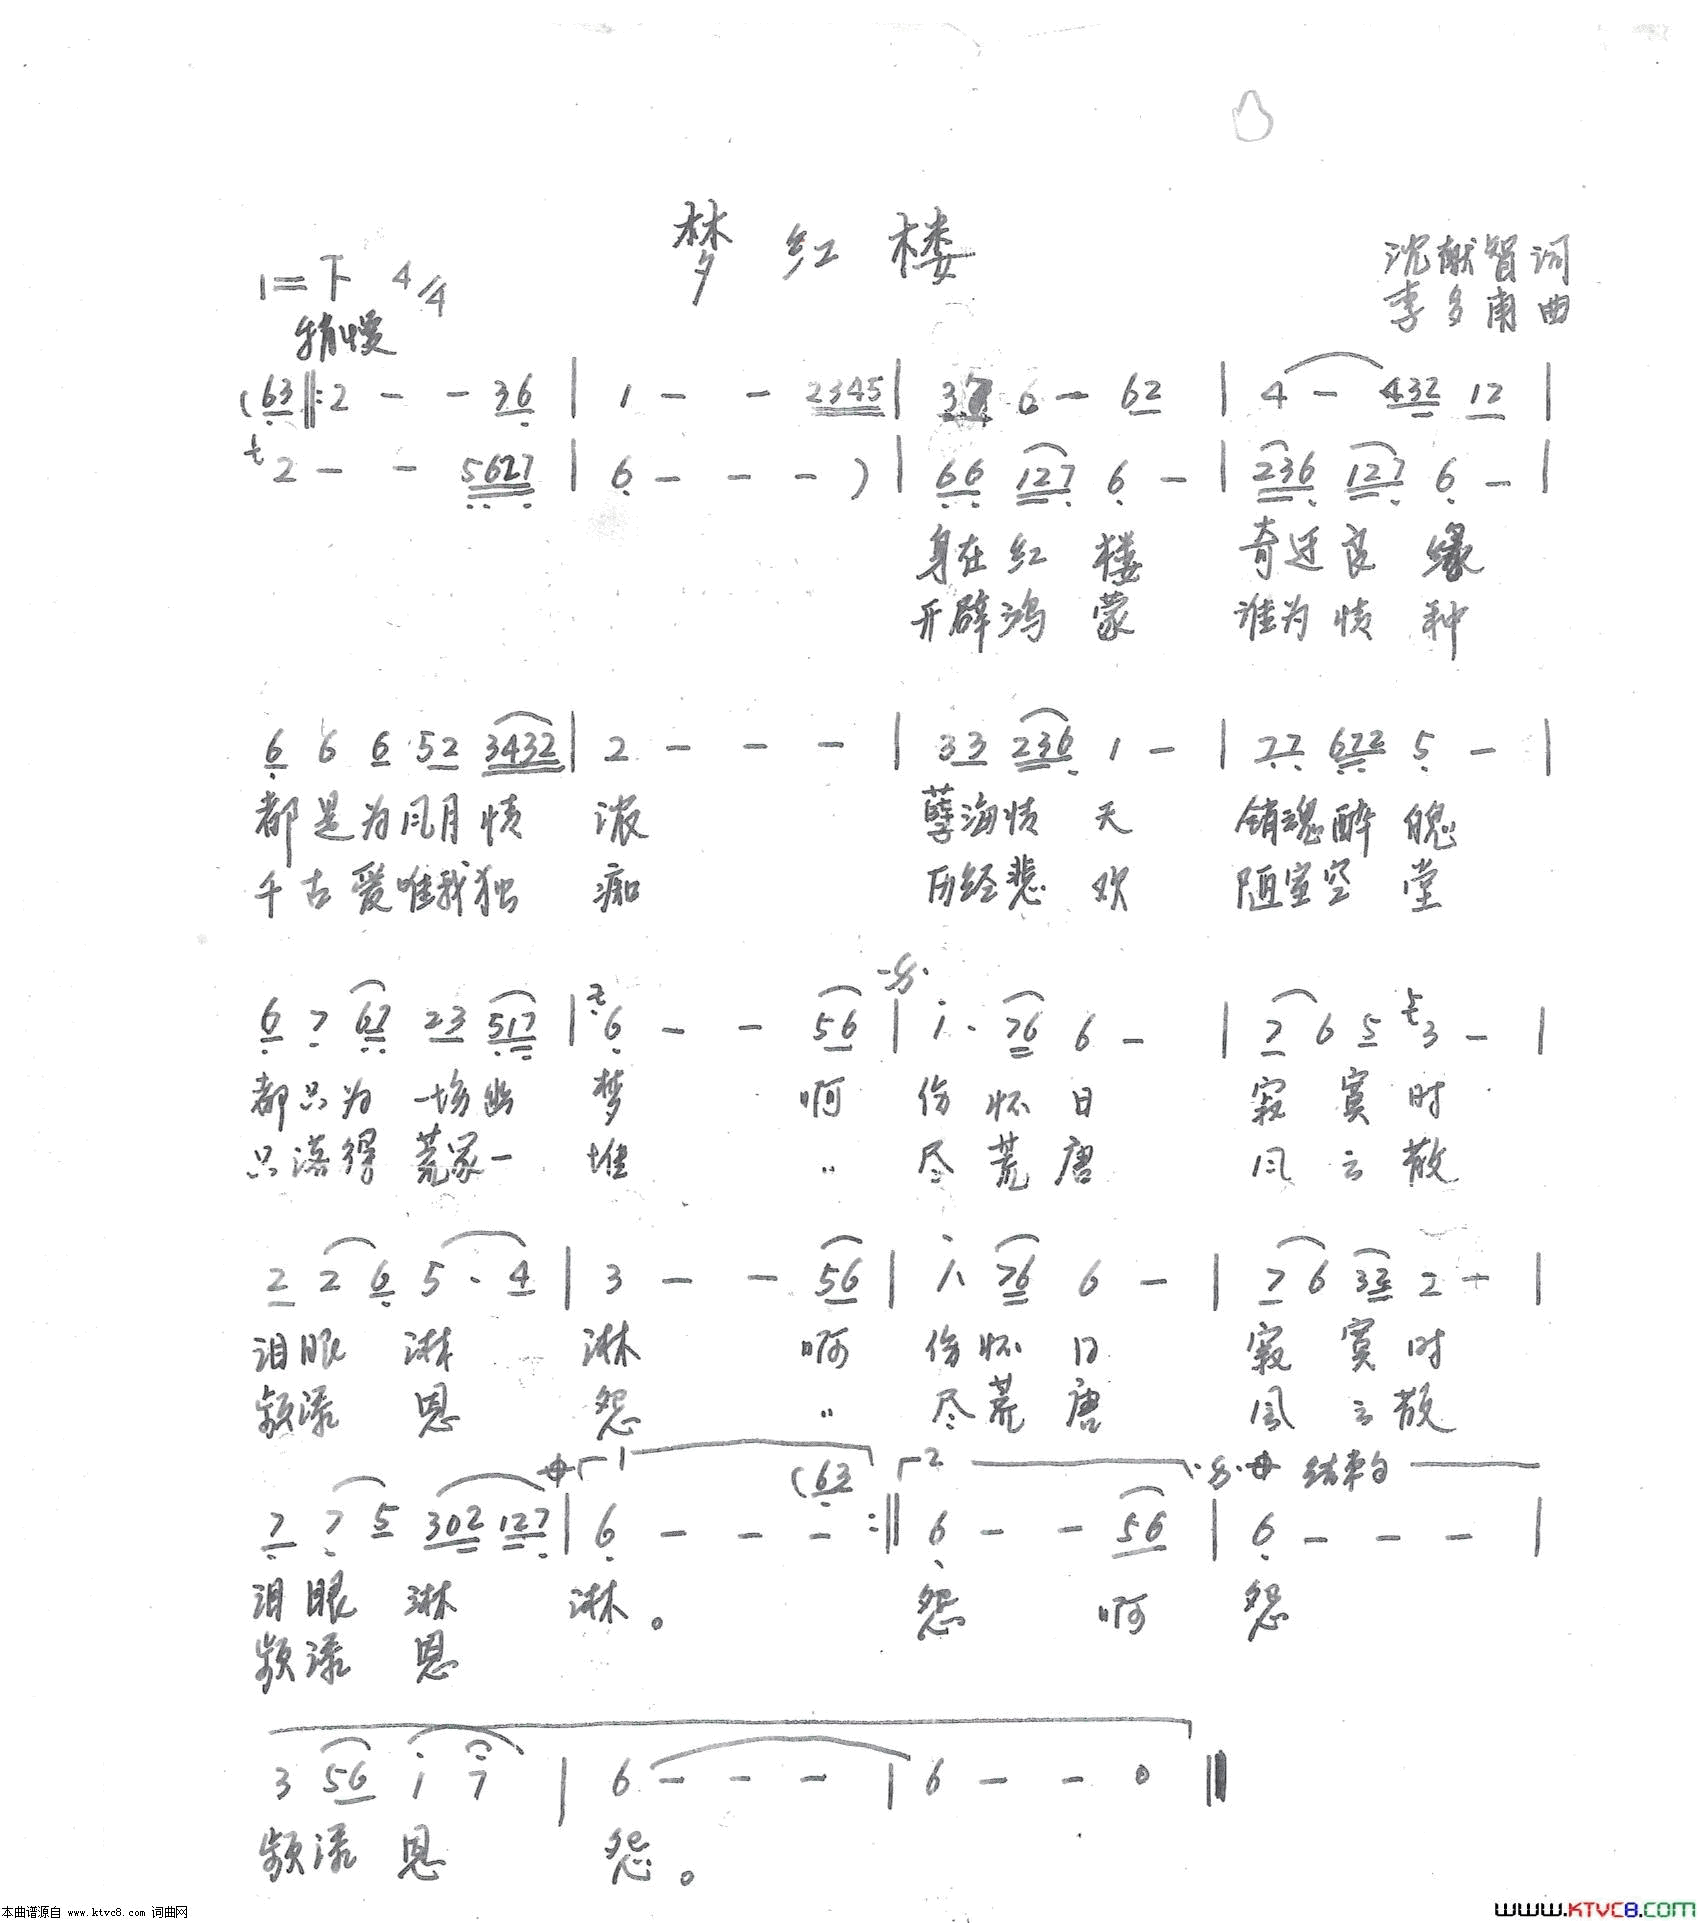 梦红楼
1=F 4/4
沈献智词
稍慢
李多甫曲
(63‖:2 - - 36 | 1 - - 2345 | 3 6 - 62 | 4 - 432 12 |
2 - - 5627 | 6 - - - ) | 66 127 6 - | 236 127 6 - |
身在红楼 奇迂良缘
开辟鸿蒙 谁为情种
6 6 6 52 3432 | 2 - - - | 33 236 1 - | 77 672 5 - |
都是为风月情浓 孽海情天 销魂醉魄
千古爱唯我独痴 历经悲欢 陋室空堂
6 7 67 23 517 | 6 - - 56 | i· 76 6 - | 7 6 5 3 - |
都只为一场幽梦 啊 伤怀日 寂寞时
只落得荒冢一堆 〃 尽荒唐 风云散
2 2 6 5 · 4 | 3 - - 56 | i· 76 6 - | 7 6 32 2 - |
泪眼淋淋 啊 伤怀日 寂寞时
频添恩怨 〃 尽荒唐 风云散
1 (63 2 结束句
7 7 5 302 127 | 6 - - - :‖ 6 - - 56 | 6 - - - |
泪眼淋淋。 怨 啊 怨
频添恩
3 56 i 7 | 6 - - - | 6 - - 0 ‖
频添恩怨。
本曲谱源自 www.ktvc8.com 词曲网
www.KTVC8.com